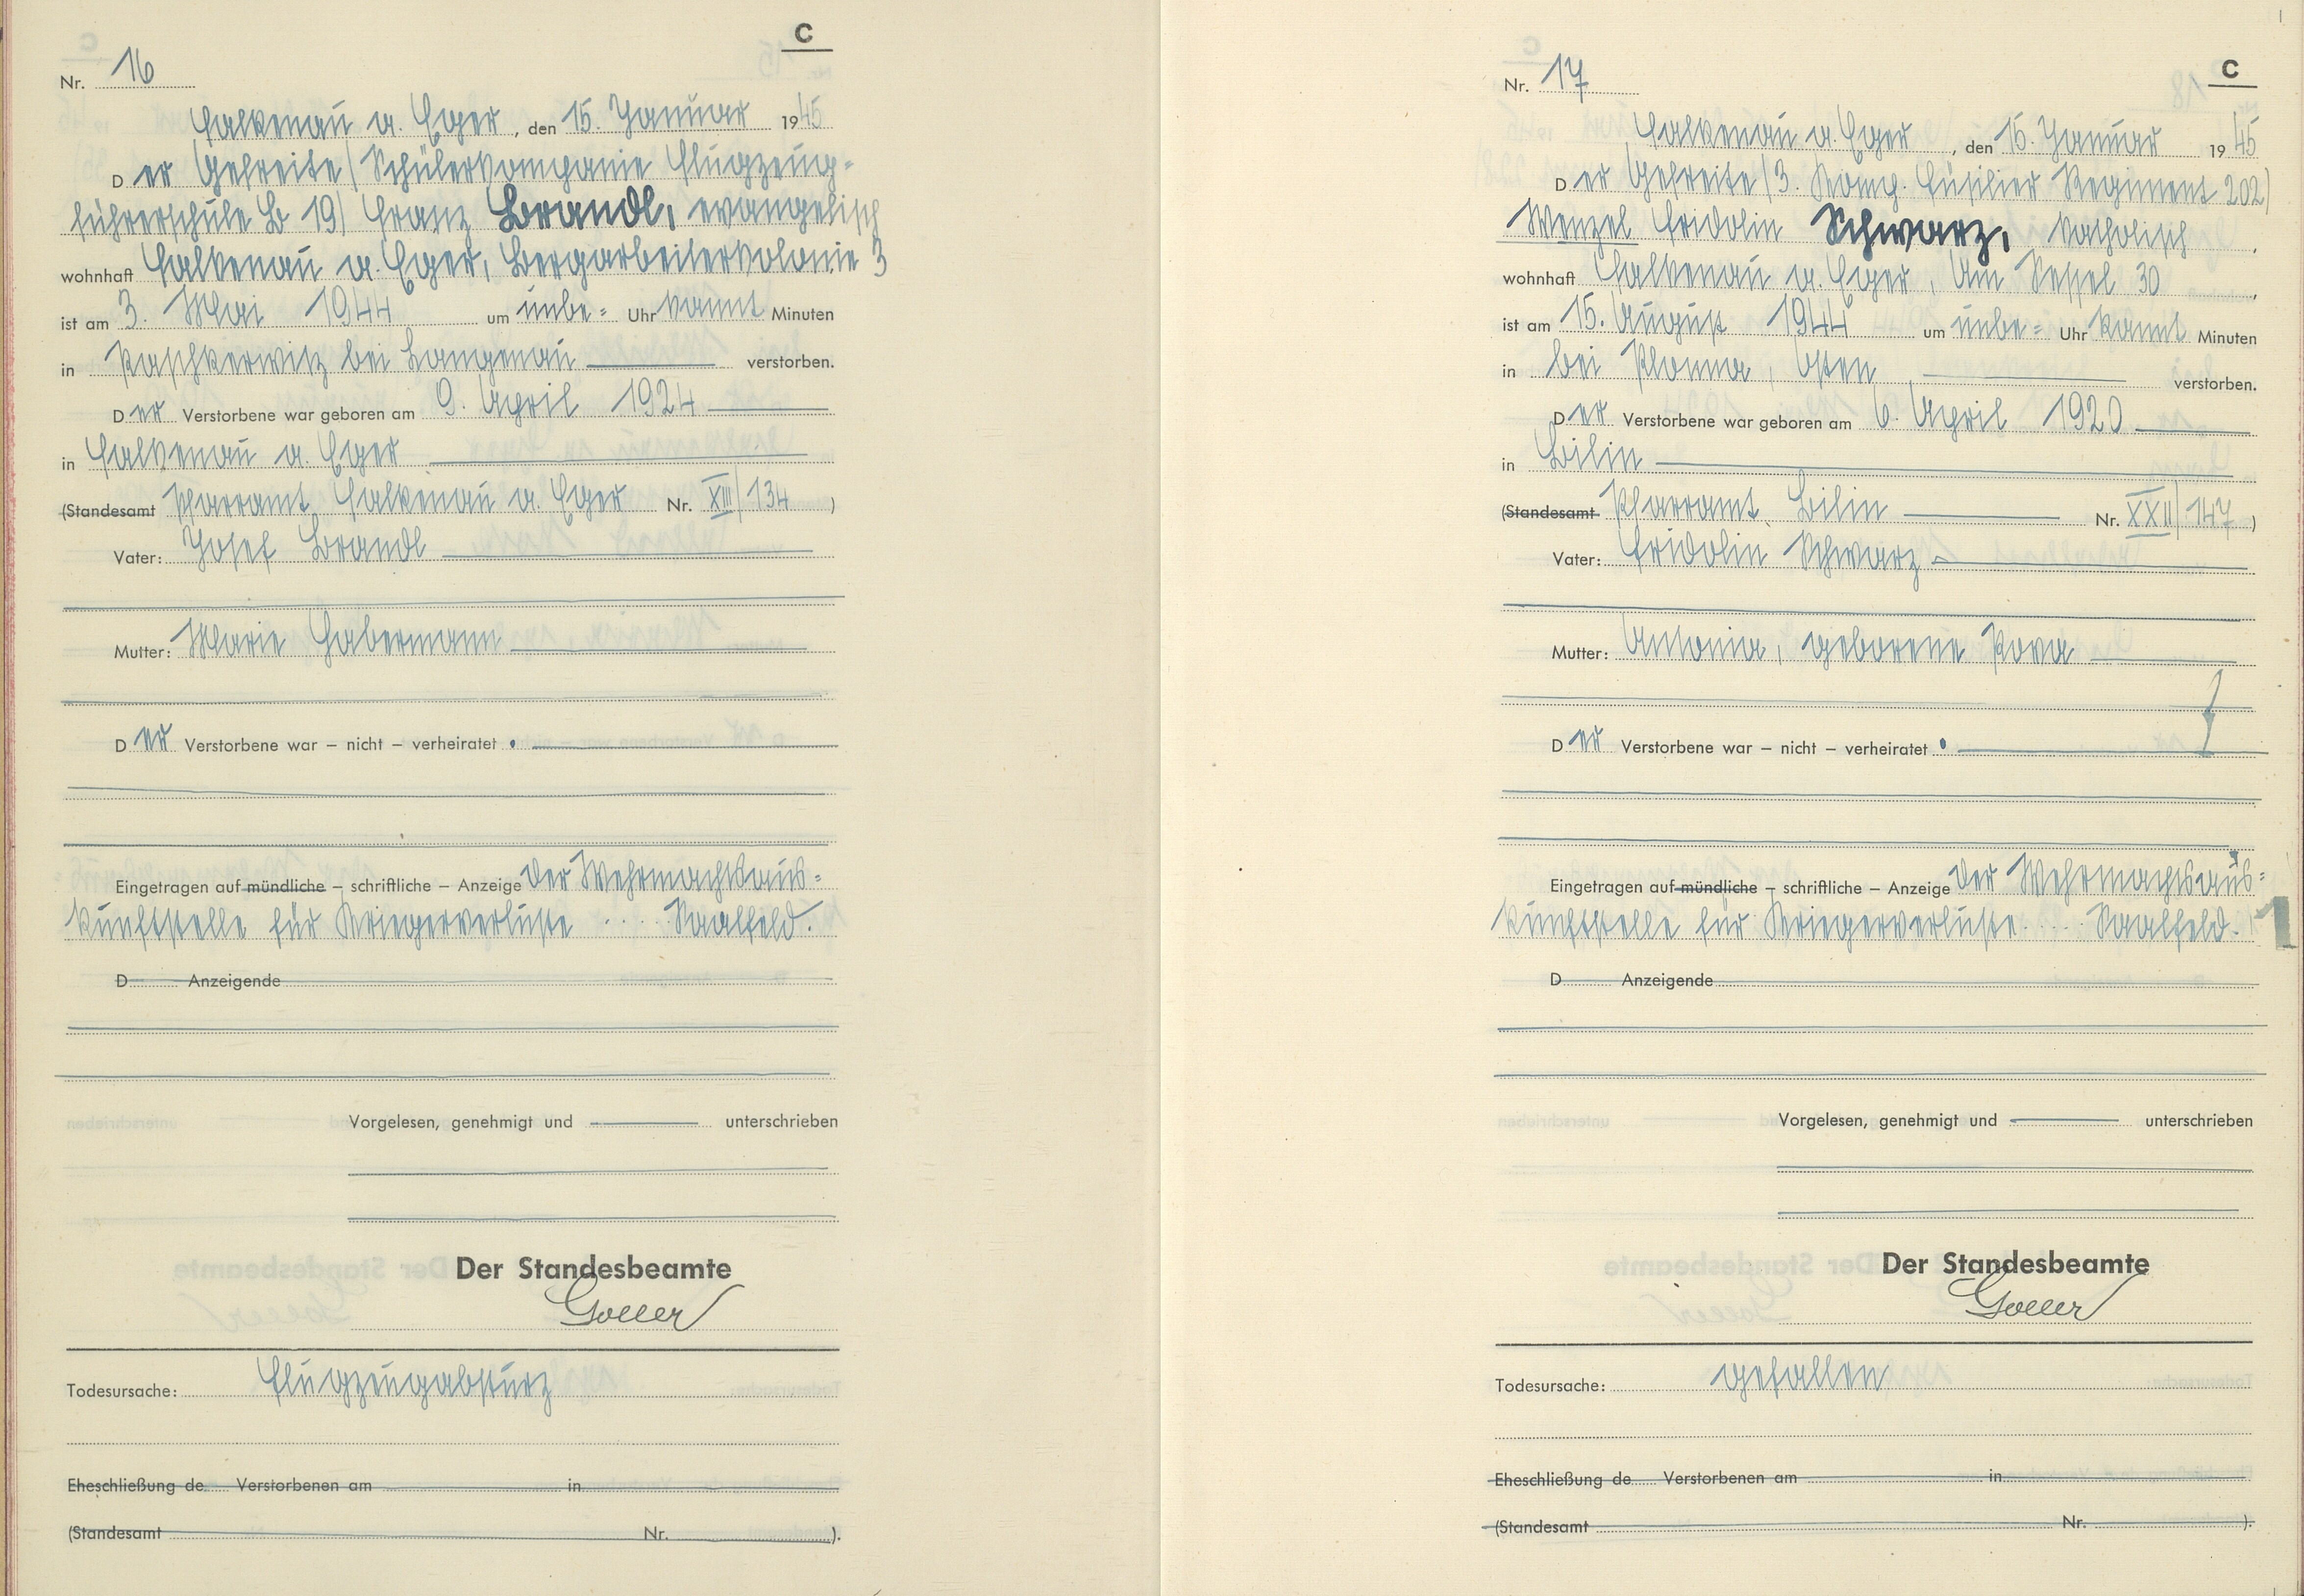 C
Nr. 16
Falkenau a. Eger, den 15. Januar 1945
Der Gefreite (Schülerkompanie Flugzeug=
führerschule B 19) Franz Brandl, evangelisch
wohnhaft Falkenau a. Eger, Bergarbeiterkolonie 3
ist am 3. Mai 1944 um unbe= Uhr kannt Minuten
in Paschkerwitz bei Langenau verstorben.
Der Verstorbene war geboren am 9. April 1924
in Falkenau a. Eger
(Standesamt Pfarramt Falkenau a. Eger Nr. XIII/134)
Vater: Josef Brandl
Mutter: Marie Habermann
Der Verstorbene war – nicht – verheiratet.
Eingetragen auf mündliche – schriftliche – Anzeige der Wehrmachtsaus=
kunftstelle für Kriegerverluste .... Saalfeld.
D Anzeigende
Vorgelesen, genehmigt und unterschrieben
Der Standesbeamte
Goller
Todesursache: Flugzeugabsturz
Eheschließung de Verstorbenen am in
(Standesamt Nr. ).
C
Nr. 17
Falkenau a. Eger, den 15. Januar 1945
Der Gefreite (3. Komp. Füsilier Regiment 202)
Wenzel Fridolin Schwarz, katholisch
wohnhaft Falkenau a. Eger, Am Kessel 30,
ist am 15. August 1944 um unbe= Uhr kannt Minuten
in bei Plonna, Osten verstorben.
Der Verstorbene war geboren am 6. April 1920
in Bilin
(Standesamt Pfarramt Bilin Nr. XXII/147)
Vater: Fridolin Schwarz
Mutter: Antonia, geborene Kova
Der Verstorbene war – nicht – verheiratet.
Eingetragen auf mündliche – schriftliche – Anzeige der Wehrmachtsaus=
kunftstelle für Kriegerverluste .... Saalfeld. 1
D Anzeigende
Vorgelesen, genehmigt und unterschrieben
Der Standesbeamte
Goller
Todesursache: gefallen
Eheschließung de Verstorbenen am in
(Standesamt Nr. ).